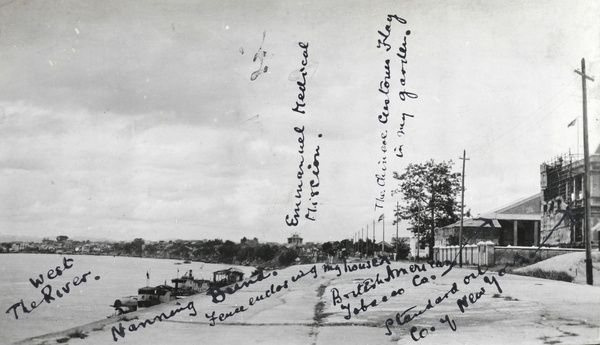 Emmanuel Medical
Mission.
The Chinese Customs Flag
in my garden.
West
The River.
Nanning Bund.
Fence enclosing my house.
British American
Tobacco Co.
Standard Oil
Co. of New Y